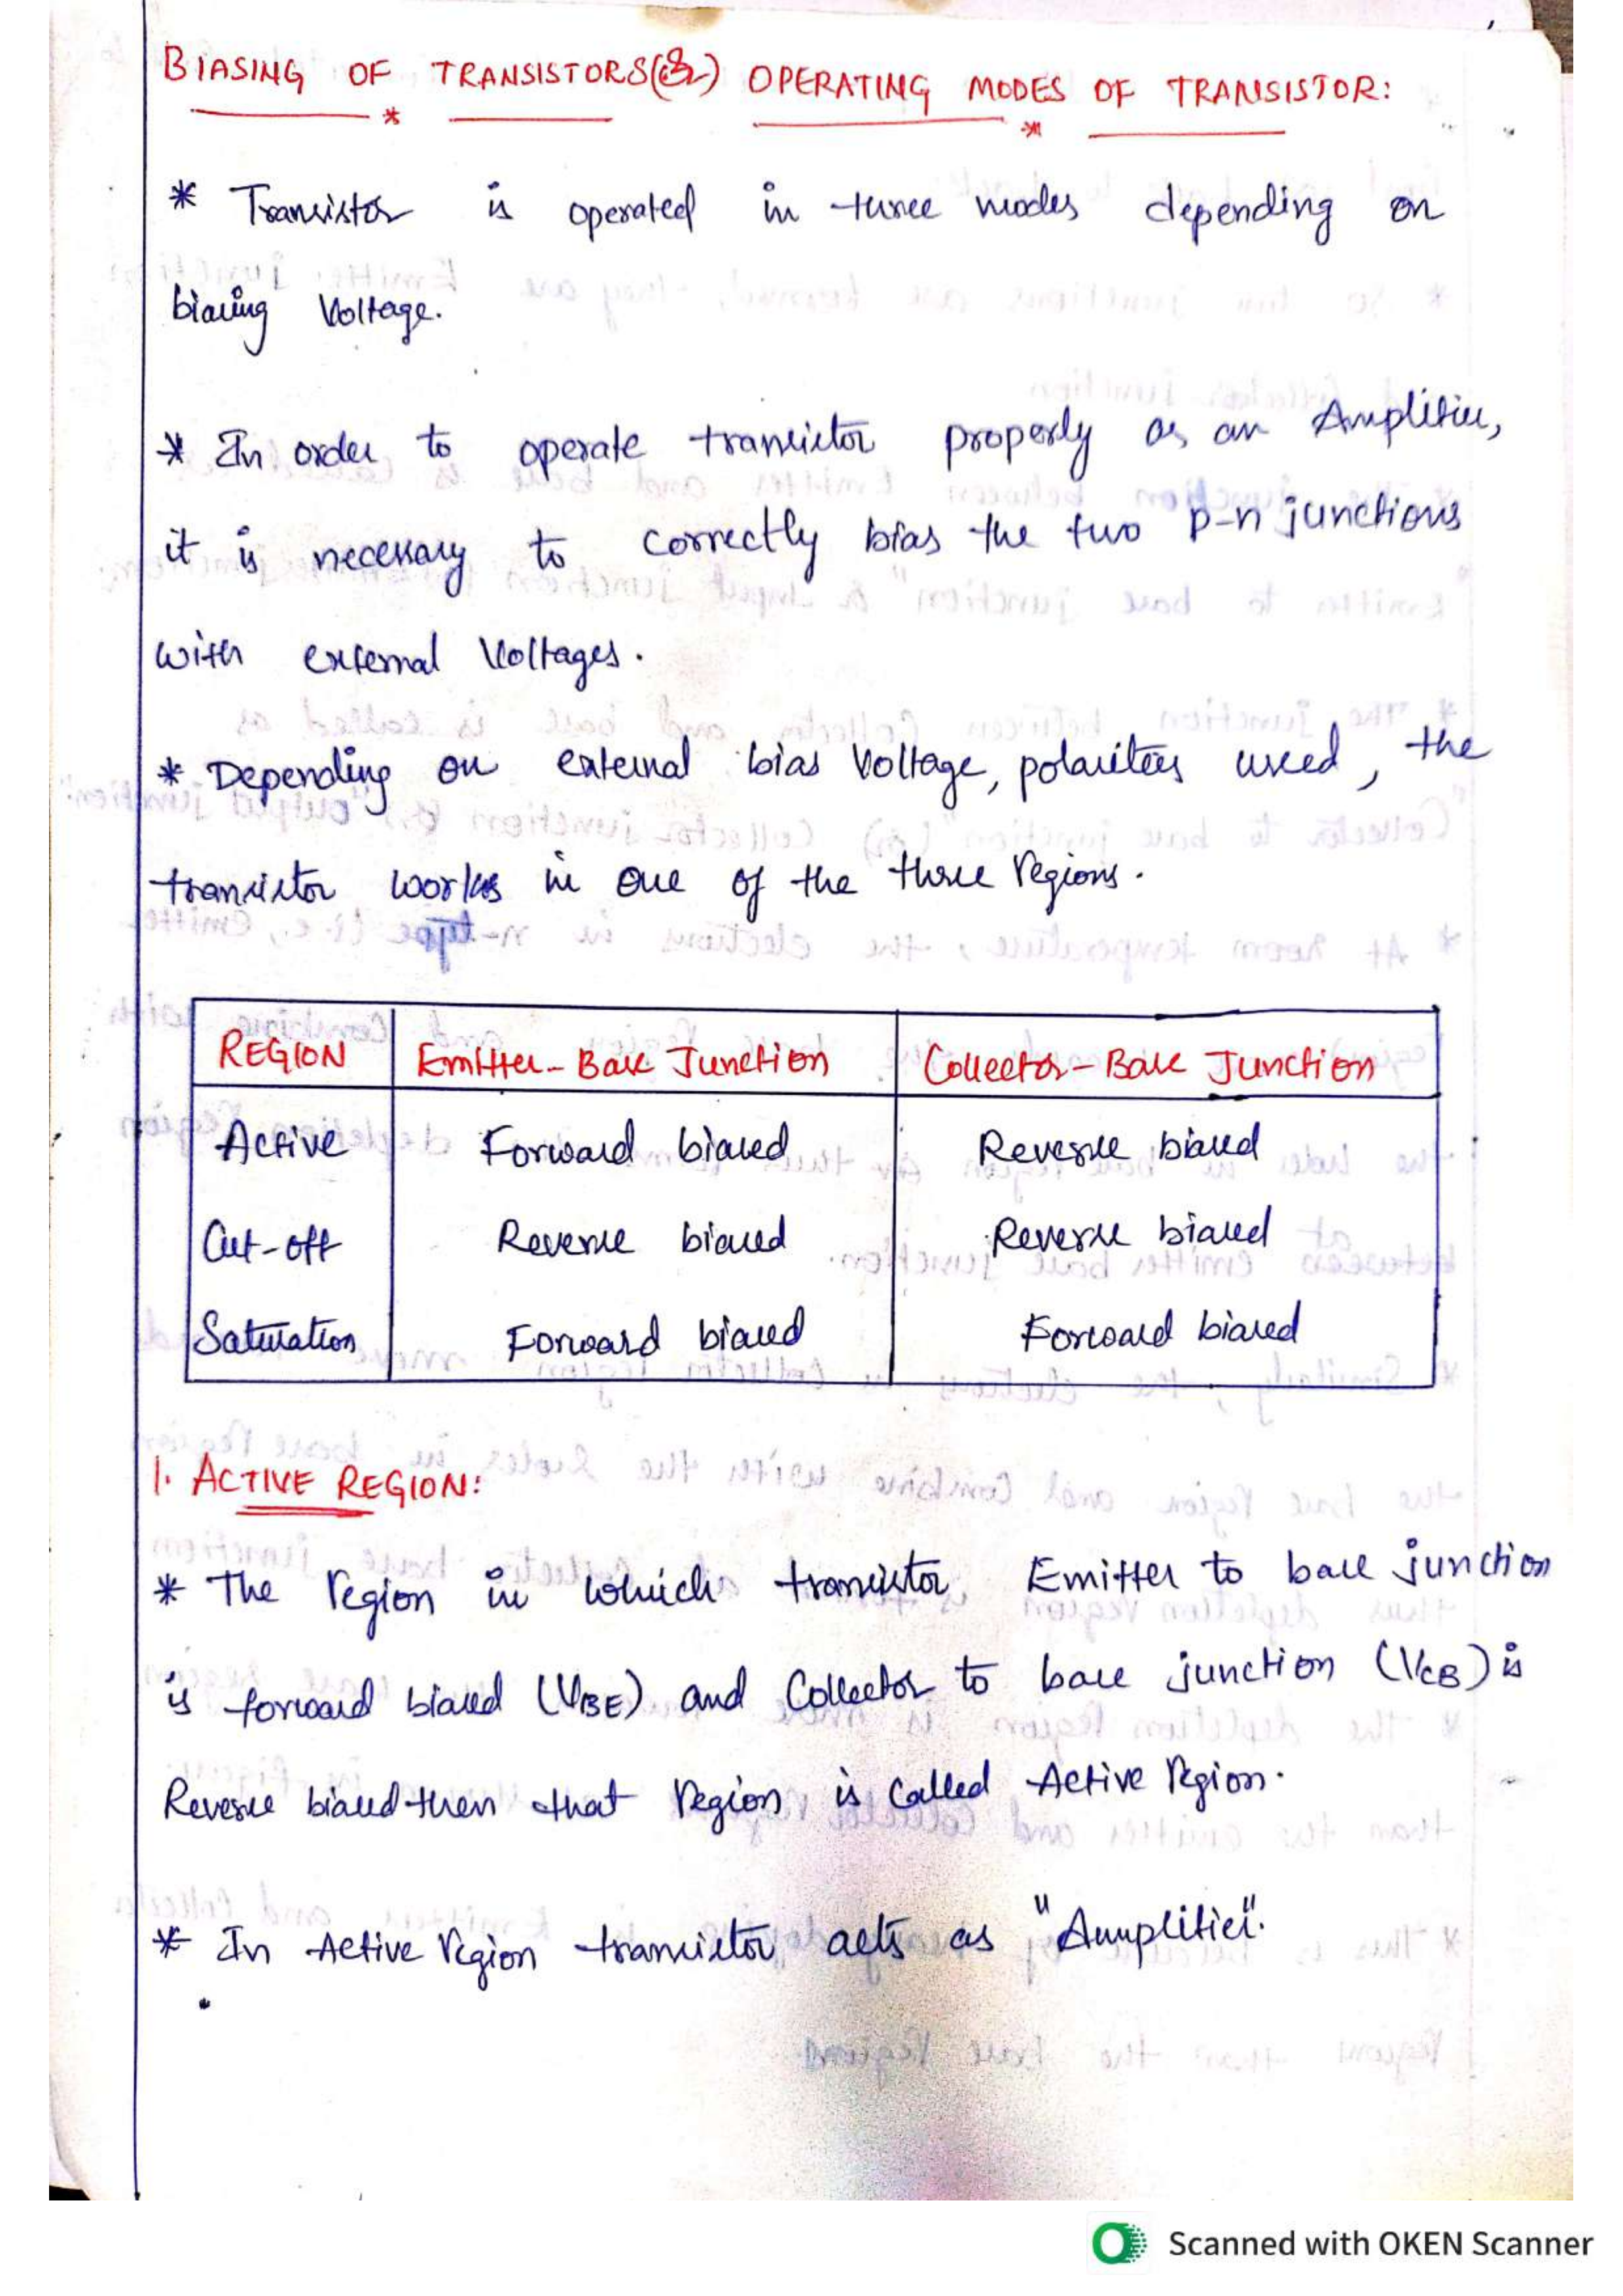 BIASING OF TRANSISTORS (or) OPERATING MODES OF TRANSISTOR:
* Transistor is operated in three modes depending on
biasing Voltage.
* In order to operate transistor properly as an Amplifier,
it is necessary to correctly bias the two p-n junctions
with external Voltages.
* Depending on external bias Voltage, polarities used, the
transistor works in one of the three regions.
REGION Emitter-Base Junction Collector-Base Junction
Active Forward biased Reverse biased
Cut-off Reverse biased Reverse biased
Saturation Forward biased Forward biased
1. ACTIVE REGION:
* The region in which transistor Emitter to base junction
is forward biased (VBE) and Collector to base junction (VCB) is
Reverse biased then that region is called Active region.
* In Active region transistor acts as "Amplifier".
Scanned with OKEN Scanner